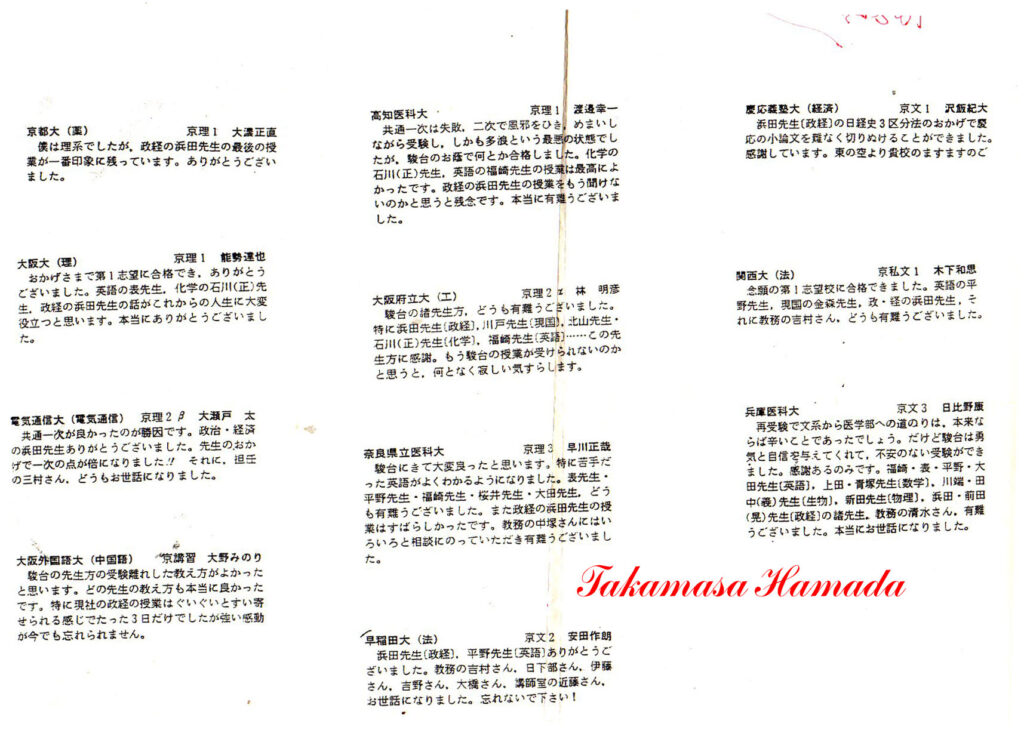 京都大(薬) 京理1 大溝正直
僕は理系でしたが,政経の浜田先生の最後の授
業が一番印象に残っています。ありがとうござい
ました。
大阪大(理) 京理1 能勢達也
おかげさまで第1志望に合格でき,ありがとう
ございました。英語の表先生,化学の石川(正)先
生,政経の浜田先生の話がこれからの人生に大変
役立つと思います。本当にありがとうございまし
た。
電気通信大(電気通信) 京理2β 大瀬戸 太
共通一次が良かったのが勝因です。政治・経済
の浜田先生ありがとうございました。先生のおか
げで一次の点が倍になりました!! それに,担任
の三村さん,どうもお世話になりました。
大阪外国語大(中国語) 京講習 大野みのり
駿台の先生方の受験離れした教え方がよかった
と思います。どの先生の教え方も本当に良かった
です。特に現社の政経の授業はぐいぐいとすい寄
せられる感じでたった3日だけでしたが強い感動
が今でも忘れられません。
高知医科大 京理1 渡邊幸一
共通一次は失敗,二次で風邪をひき,めまいし
ながら受験し,しかも多浪という最悪の状態でし
たが,駿台のお蔭で何とか合格しました。化学の
石川(正)先生,英語の福崎先生の授業は最高によ
かったです。政経の浜田先生の授業をもう聞けな
いのかと思うと残念です。本当に有難うございま
した。
大阪府立大(工) 京理2α 林 明彦
駿台の諸先生方,どうも有難うございました。
特に浜田先生〔政経〕,川戸先生〔現国〕,北山先生・
石川(正)先生〔化学〕,福崎先生〔英語〕……この先
生方に感謝。もう駿台の授業が受けられないのか
と思うと,何となく寂しい気すらします。
奈良県立医科大 京理3 早川正哉
駿台にきて大変良ったと思います。特に苦手だ
った英語がよくわかるようになりました。表先生・
平野先生・福崎先生・桜井先生・大田先生,どう
も有難うございました。また政経の浜田先生の授
業はすばらしかったです。教務の中塚さんにはい
ろいろと相談にのっていただき有難うございまし
た。
早稲田大(法) 京文2 安田作朗
浜田先生〔政経〕,平野先生〔英語〕ありがとうご
ざいました。教務の吉村さん,日下部さん,伊藤
さん,吉野さん,大橋さん,講師室の近藤さん,
お世話になりました。忘れないで下さい!
慶応義塾大(経済) 京文1 沢飯紀大
浜田先生〔政経〕の日経史3区分法のおかげで慶
応の小論文を難なく切りぬけることができました。
感謝しています。東の空より貴校のますますのご
関西大(法) 京私文1 木下和思
念願の第1志望校に合格できました。英語の平
野先生,現国の金森先生,政・経の浜田先生,そ
れに教務の吉村さん,どうも有難うございました。
兵庫医科大 京文3 日比野康
再受験で文系から医学部への道のりは,本来な
らば辛いことであったでしょう。だけど駿台は勇
気と自信を与えてくれて,不安のない受験ができ
ました。感謝あるのみです。福崎・表・平野・大
田先生〔英語〕,上田・青塚先生〔数学〕,川端・田
中(義)先生〔生物〕,新田先生〔物理〕,浜田・前田
(晃)先生〔政経〕の諸先生,教務の清水さん,有難
うございました。本当にお世話になりました。
Takamasa Hamada